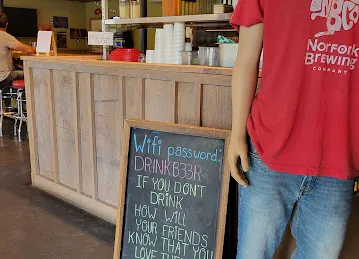 Wifi password?
DRINKB33R
IF YOU DON'T
DRINK
HOW WILL
YOUR FRIENDS
KNOW THAT YOU
LOVE
NORFORK
BREWING
COMPANY